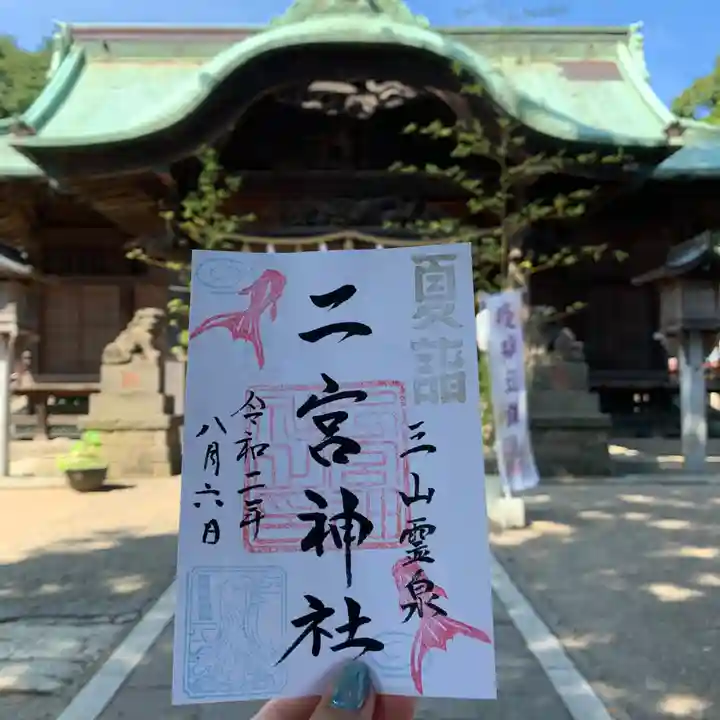 夏詣
三山霊泉
二宮神社
令和二年
八月六日